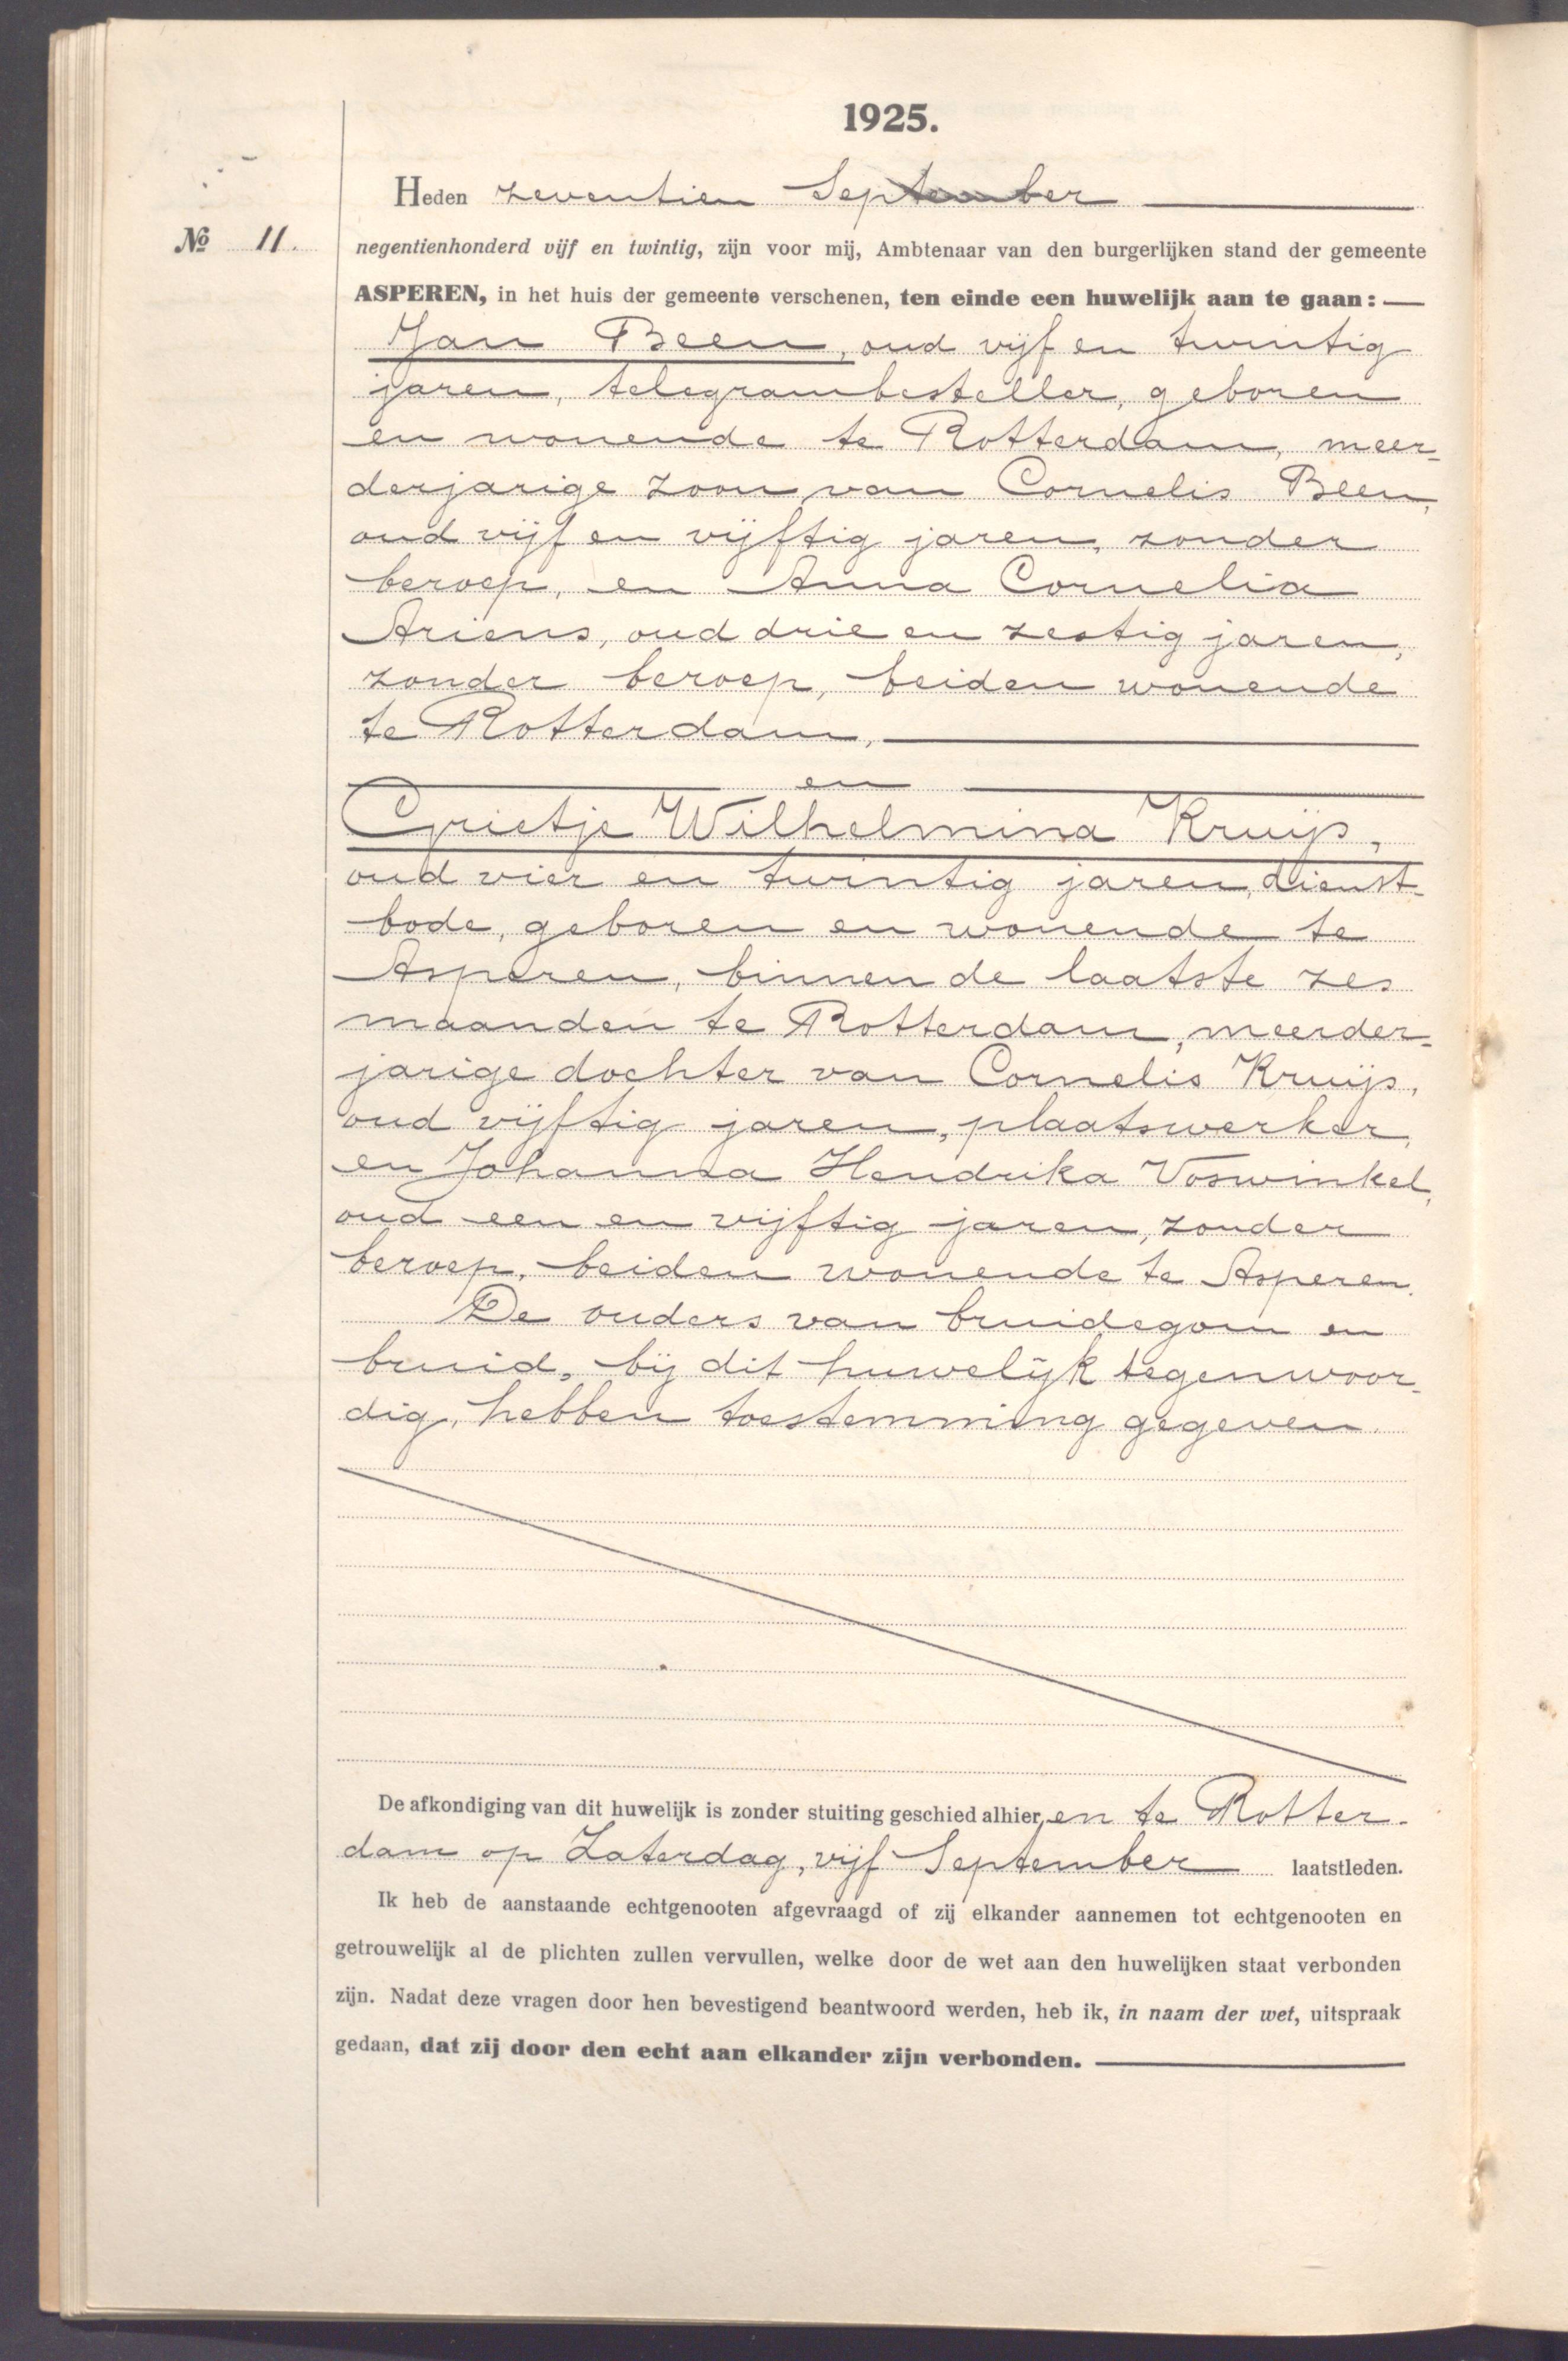 1925.
Heden zeventien September
№ 11.
negentienhonderd vijf en twintig, zijn voor mij, Ambtenaar van den burgerlijken stand der gemeente
ASPEREN, in het huis der gemeente verschenen, ten einde een huwelijk aan te gaan: —
Jan Been, oud vijf en twintig
jaren, telegrambesteller, geboren
en wonende te Rotterdam, meer-
derjarige zoon van Cornelis Been,
oud vijf en vijftig jaren, zonder
beroep, en Anna Cornelia
Ariens, oud drie en zestig jaren,
zonder beroep, beiden wonende
te Rotterdam,
en
Grietje Wilhelmina Kruijs,
oud vier en twintig jaren, dienst-
bode, geboren en wonende te
Asperen, binnen de laatste zes
maanden te Rotterdam, meerder-
jarige dochter van Cornelis Kruijs,
oud vijftig jaren, plaatswerker,
en Johanna Hendrika Voswinkel,
oud een en vijftig jaren, zonder
beroep, beiden wonende te Asperen.
De ouders van bruidegom en
bruid, bij dit huwelijk tegenwoor-
dig, hebben toestemming gegeven.
De afkondiging van dit huwelijk is zonder stuiting geschied alhier, en te Rotter-
dam op Zaterdag, vijf September laatstleden.
Ik heb de aanstaande echtgenooten afgevraagd of zij elkander aannemen tot echtgenooten en
getrouwelijk al de plichten zullen vervullen, welke door de wet aan den huwelijken staat verbonden
zijn. Nadat deze vragen door hen bevestigend beantwoord werden, heb ik, in naam der wet, uitspraak
gedaan, dat zij door den echt aan elkander zijn verbonden.